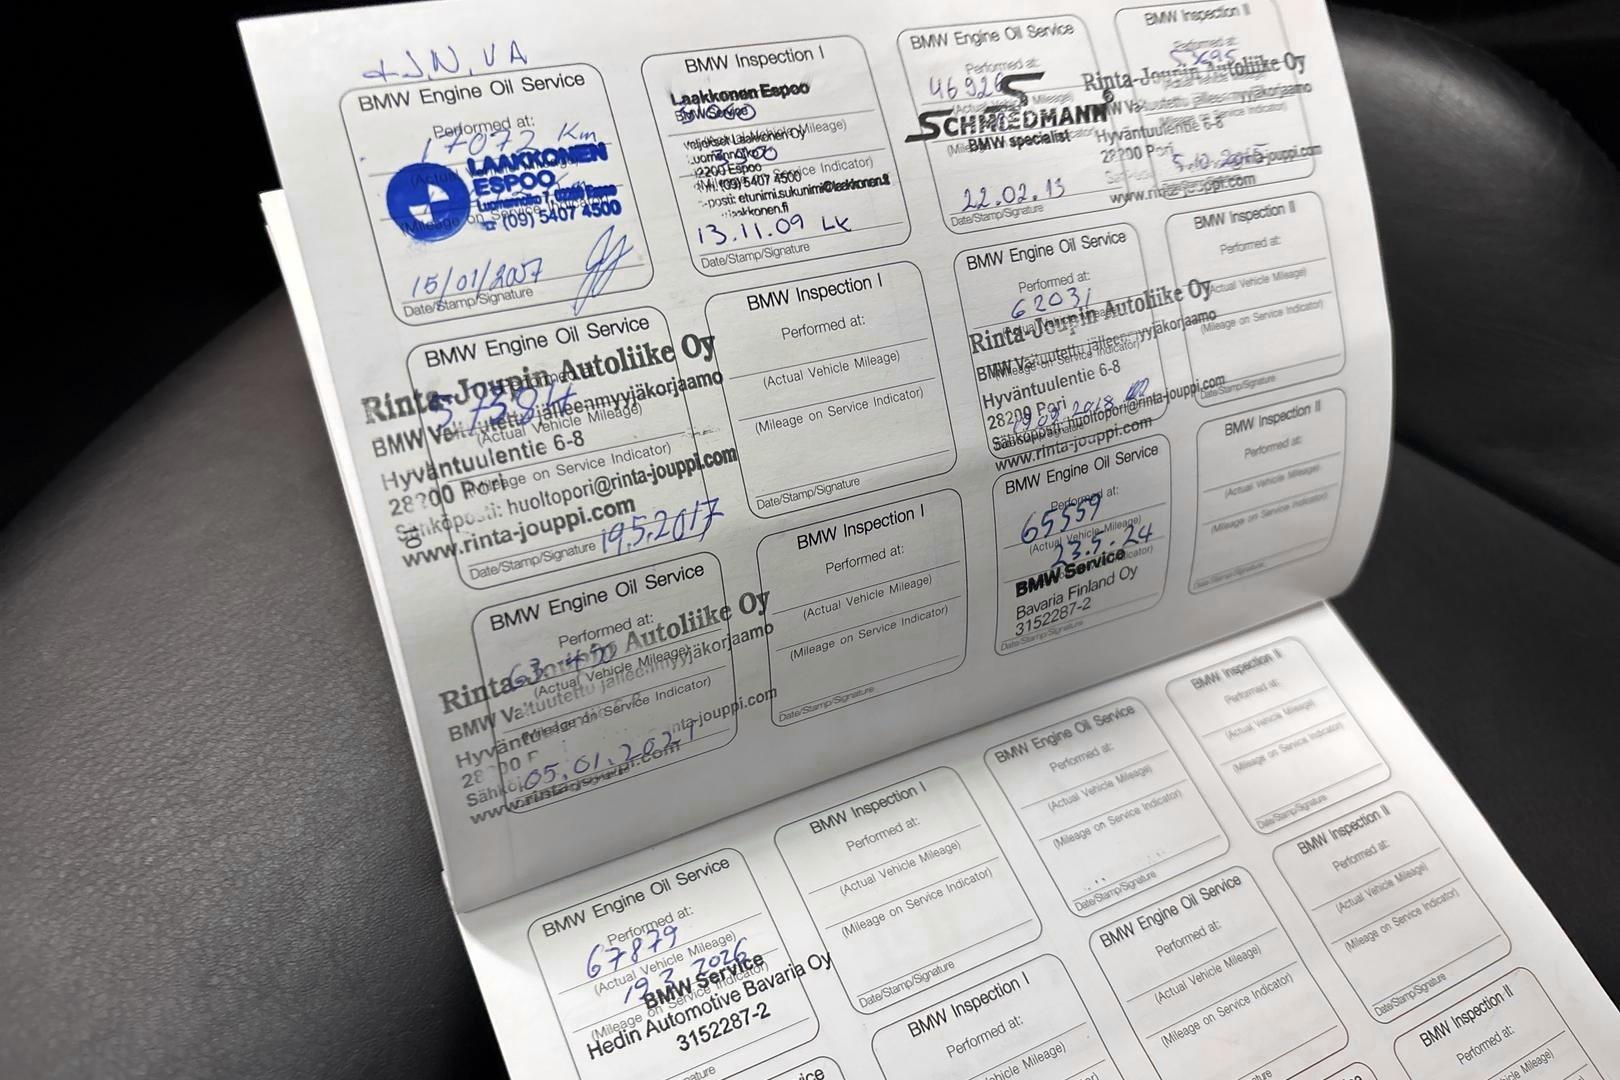 BMW Engine Oil Service
Performed at:
17072 Km
LAAKKONEN
ESPOO
(09) 5407 4500
(Mileage on Service Indicator)
15/01/2007
Date/Stamp/Signature
BMW Inspection I
Laakkonen Espoo
BMW Service
Veljekset Laakkonen Oy
02200 Espoo
(09) 5407 4500
etunimi.sukunimi@laakkonen.fi
laakkonen.fi
13.11.09 LK
Date/Stamp/Signature
BMW Engine Oil Service
Performed at:
SCHMIEDMANN
BMW specialist
22.02.13
Date/Stamp/Signature
BMW Inspection II
Performed at:
Rinta-Joupin Autoliike Oy
BMW Valtuutettu jälleenmyyjäkorjaamo
Hyväntuulentie 6-8
28200 Pori
5.10.2015
www.rinta-jouppi.com
BMW Engine Oil Service
Rinta-Joupin Autoliike Oy
57384
BMW Valtuutettu jälleenmyyjäkorjaamo
(Actual Vehicle Mileage)
Hyväntuulentie 6-8
(Mileage on Service Indicator)
28200 Pori
Sähköposti: huoltopori@rinta-jouppi.com
www.rinta-jouppi.com
Date/Stamp/Signature 19.5.2017
BMW Inspection I
Performed at:
(Actual Vehicle Mileage)
(Mileage on Service Indicator)
Date/Stamp/Signature
BMW Engine Oil Service
Performed at:
62031
Rinta-Joupin Autoliike Oy
BMW Valtuutettu jälleenmyyjäkorjaamo
(Mileage on Service Indicator)
Hyväntuulentie 6-8
28200 Pori
Sähköposti: huoltopori@rinta-jouppi.com
www.rinta-jouppi.com
BMW Inspection II
Performed at:
(Actual Vehicle Mileage)
(Mileage on Service Indicator)
Date/Stamp/Signature
BMW Engine Oil Service
Performed at:
Rinta-Joupin Autoliike Oy
(Actual Vehicle Mileage)
BMW Valtuutettu jälleenmyyjäkorjaamo
(Mileage on Service Indicator)
rinta-jouppi.com
05.01.2021
www.rinta-jouppi.com
BMW Inspection I
Performed at:
(Actual Vehicle Mileage)
(Mileage on Service Indicator)
Date/Stamp/Signature
BMW Engine Oil Service
Performed at:
65559
(Actual Vehicle Mileage)
23.5.24
BMW Service
Bavaria Finland Oy
3152287-2
Date/Stamp/Signature
BMW Inspection II
Performed at:
(Actual Vehicle Mileage)
(Mileage on Service Indicator)
Date/Stamp/Signature
BMW Engine Oil Service
Performed at:
67879
(Actual Vehicle Mileage)
19.2.2026
BMW Service
(Mileage on Service Indicator)
Hedin Automotive Bavaria Oy
3152287-2
BMW Inspection I
Performed at:
(Actual Vehicle Mileage)
(Mileage on Service Indicator)
Date/Stamp/Signature
BMW Engine Oil Service
Performed at:
(Actual Vehicle Mileage)
(Mileage on Service Indicator)
Date/Stamp/Signature
BMW Inspection II
Performed at:
(Actual Vehicle Mileage)
(Mileage on Service Indicator)
Date/Stamp/Signature
BMW Inspection I
Performed at:
(Actual Vehicle Mileage)
BMW Engine Oil Service
Performed at:
(Actual Vehicle Mileage)
(Mileage on Service Indicator)
BMW Inspection II
Performed at:
(Actual Vehicle Mileage)
(Mileage on Service Indicator)
Date/Stamp/Signature
BMW Inspection II
Performed at:
(Actual Vehicle Mileage)